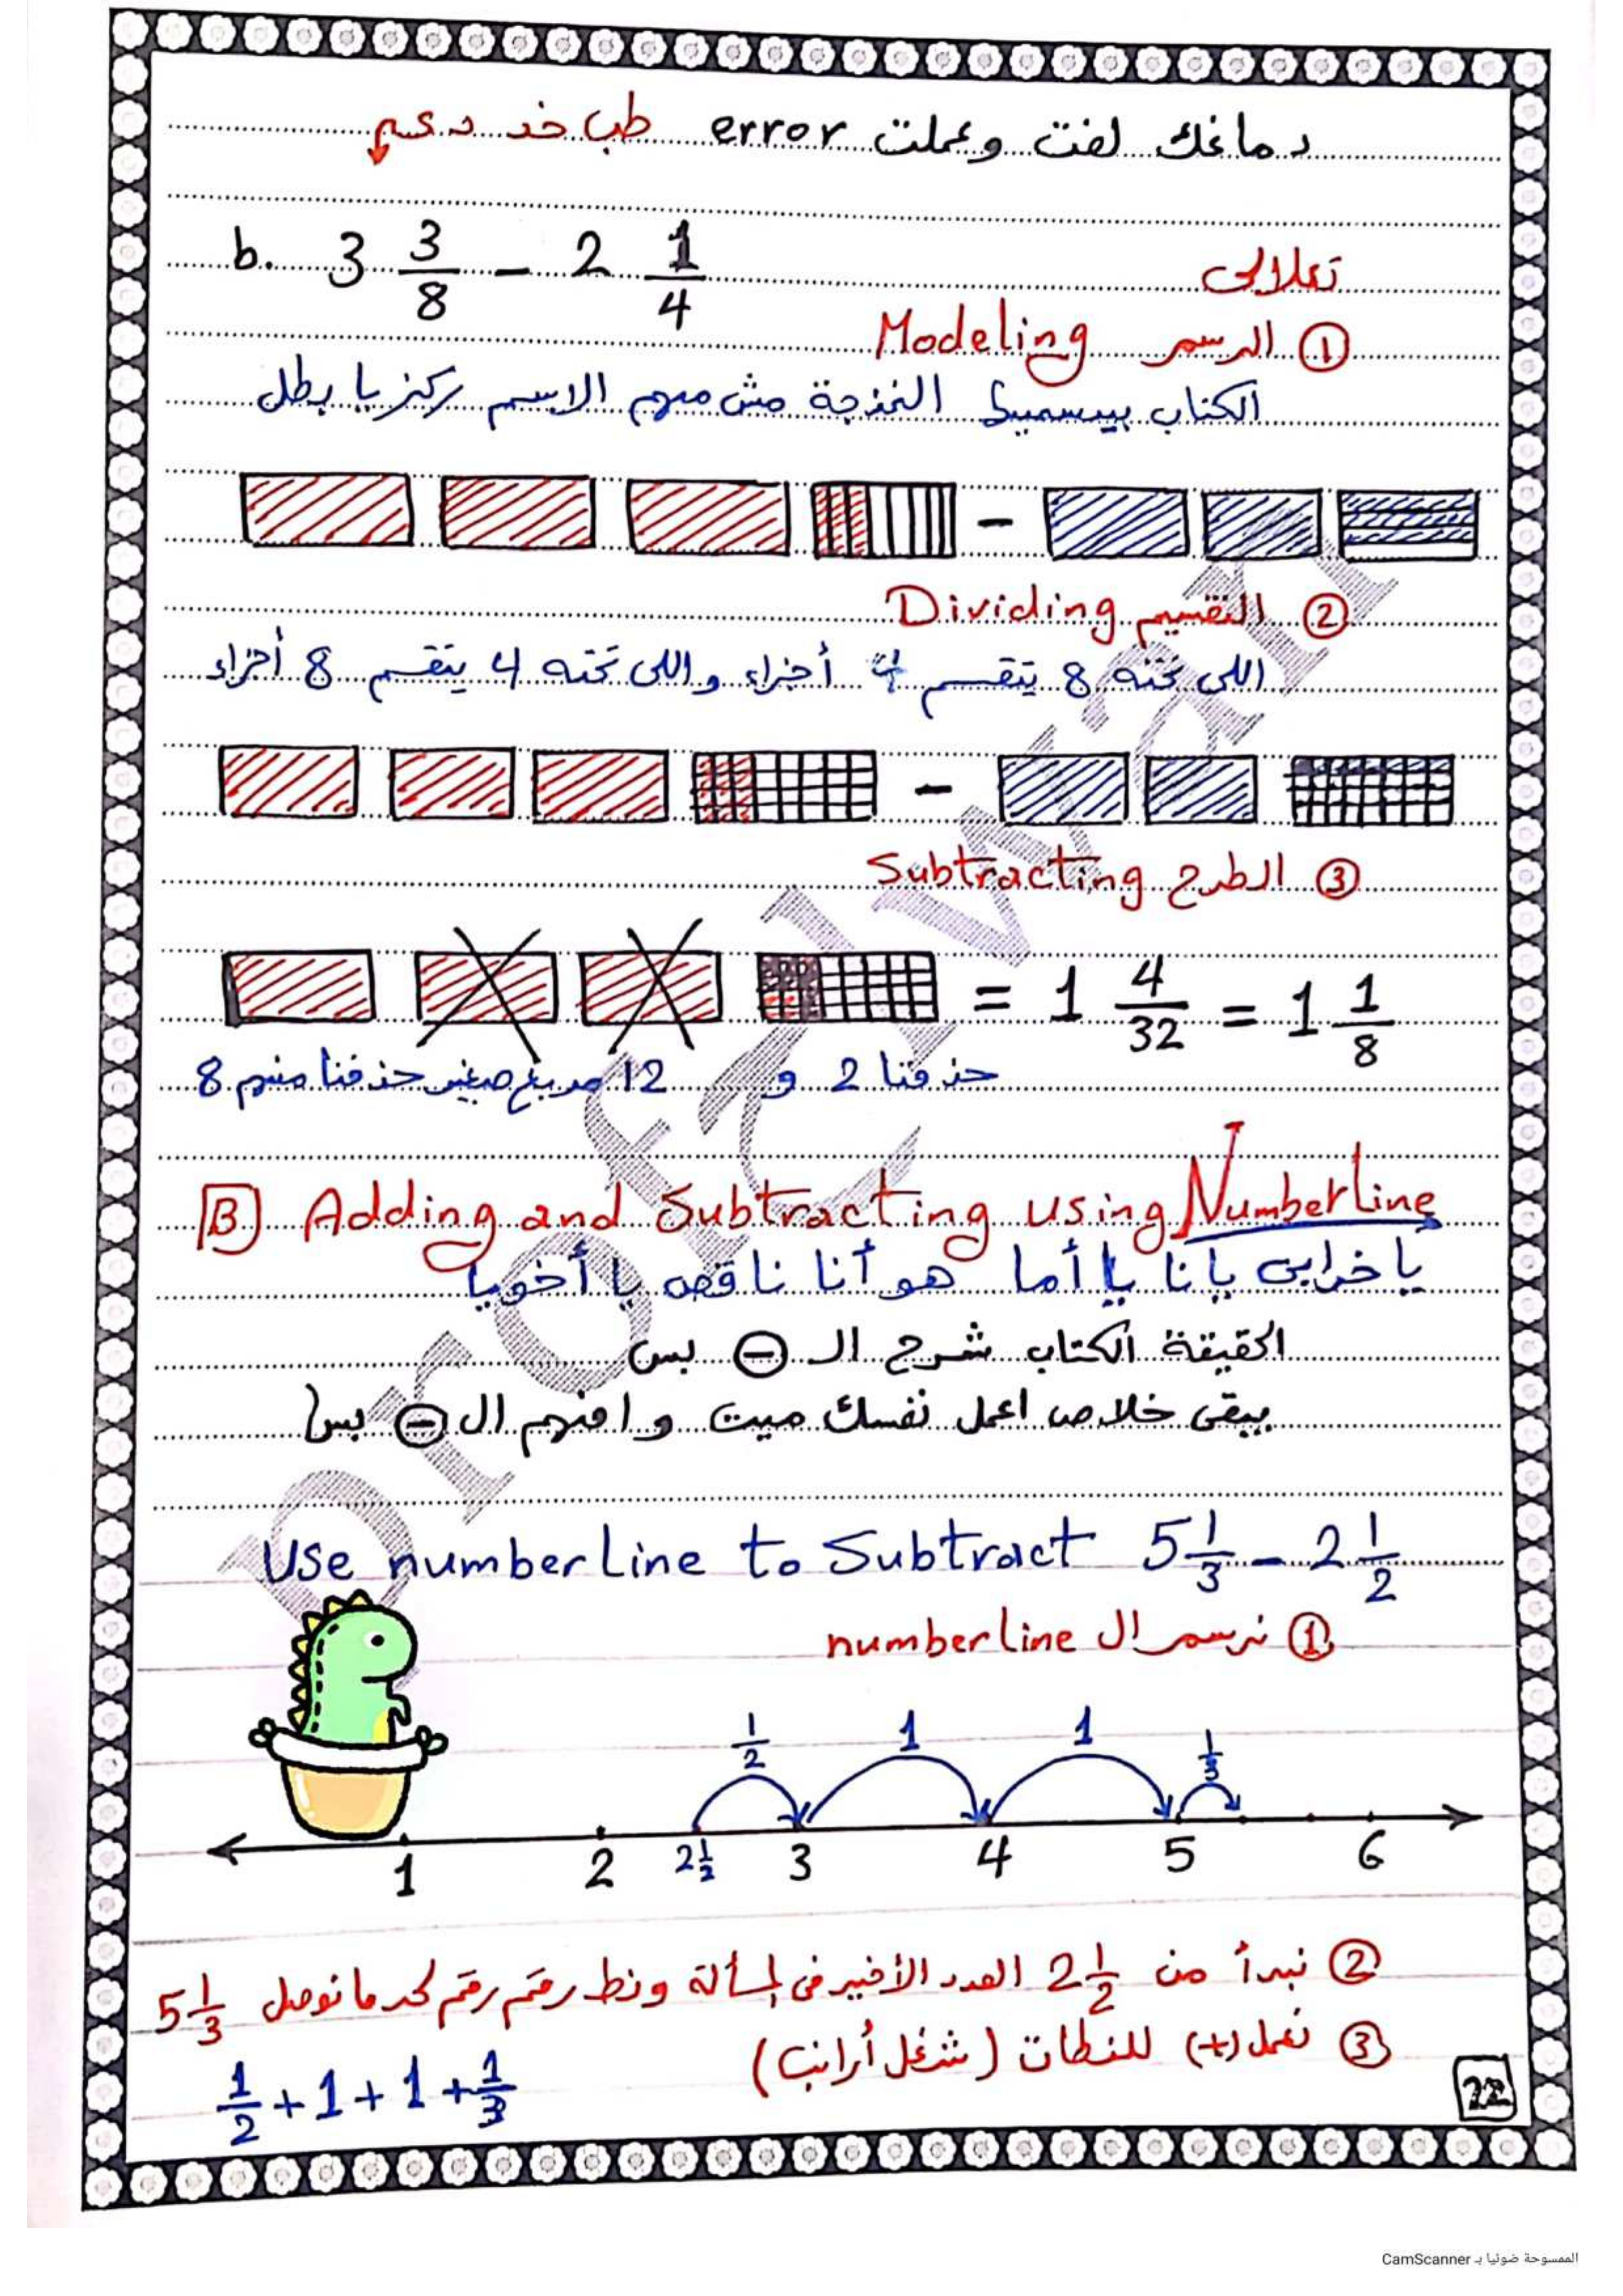 دماغك لفت وعملت error طب خد دعم
b. 3 3/8 - 2 1/4
تعالالى
① الرسم Modeling
الكتاب بيسميها النمذجة مش مهم الاسم ركز يا بطل
-
② التقسيم Dividing
اللى تحته 8 يتقسم 4 أجزاء واللى تحته 4 يتقسم 8 أجزاء
-
③ الطرح Subtracting
= 1 4/32 = 1 1/8
حذفنا 2 و 12 مربع صغير حذفنا منهم 8
B Adding and Subtracting using Numberline
يا خرابى يانا يا أما هو أنا ناقص يا أخويا
الحقيقة الكتاب شرح الـ ⊖ بس
يبقى خلاص اعمل نفسك ميت وافهم الـ ⊖ بس
Use numberline to Subtract 5 1/3 - 2 1/2
① نرسم الـ numberline
1/2 1 1 1/3
1 2 2 1/2 3 4 5 6
② نبدأ من 2 1/2 العدد الأخير فى المسألة ونط رقم رقم لحد ما نوصل 5 1/3
③ نعمل (+) للنطات (شغل أرانب)
1/2 + 1 + 1 + 1/3
22
الممسوحة ضوئيا بـ CamScanner
Prof